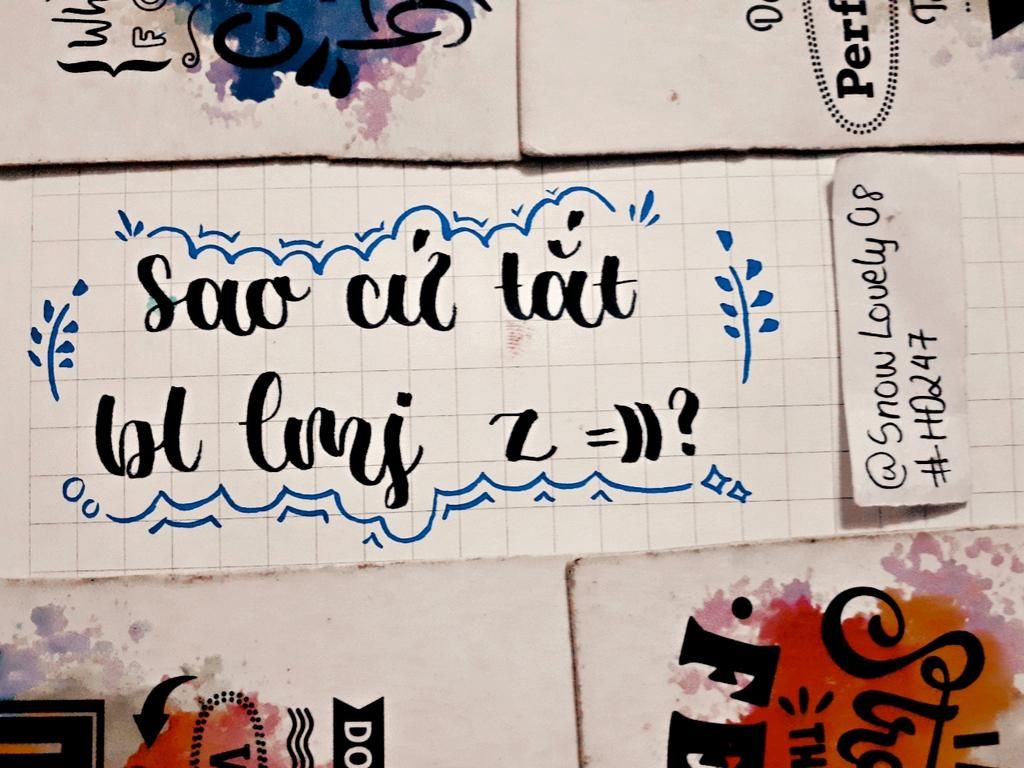 Sao cứ tắt
bl lmj z =))?
@Snow Lovely 08
#HD247
Perf
DO
TH
FE